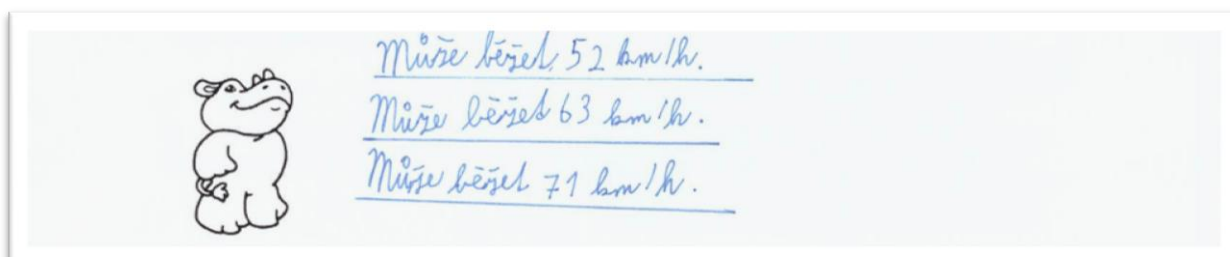 Může běžet 52 km/h.
Může běžet 63 km/h.
Může běžet 71 km/h.